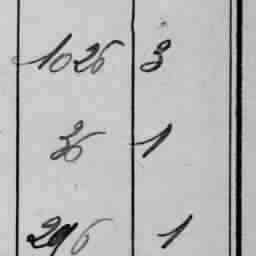 1026 3
36 1
296 1